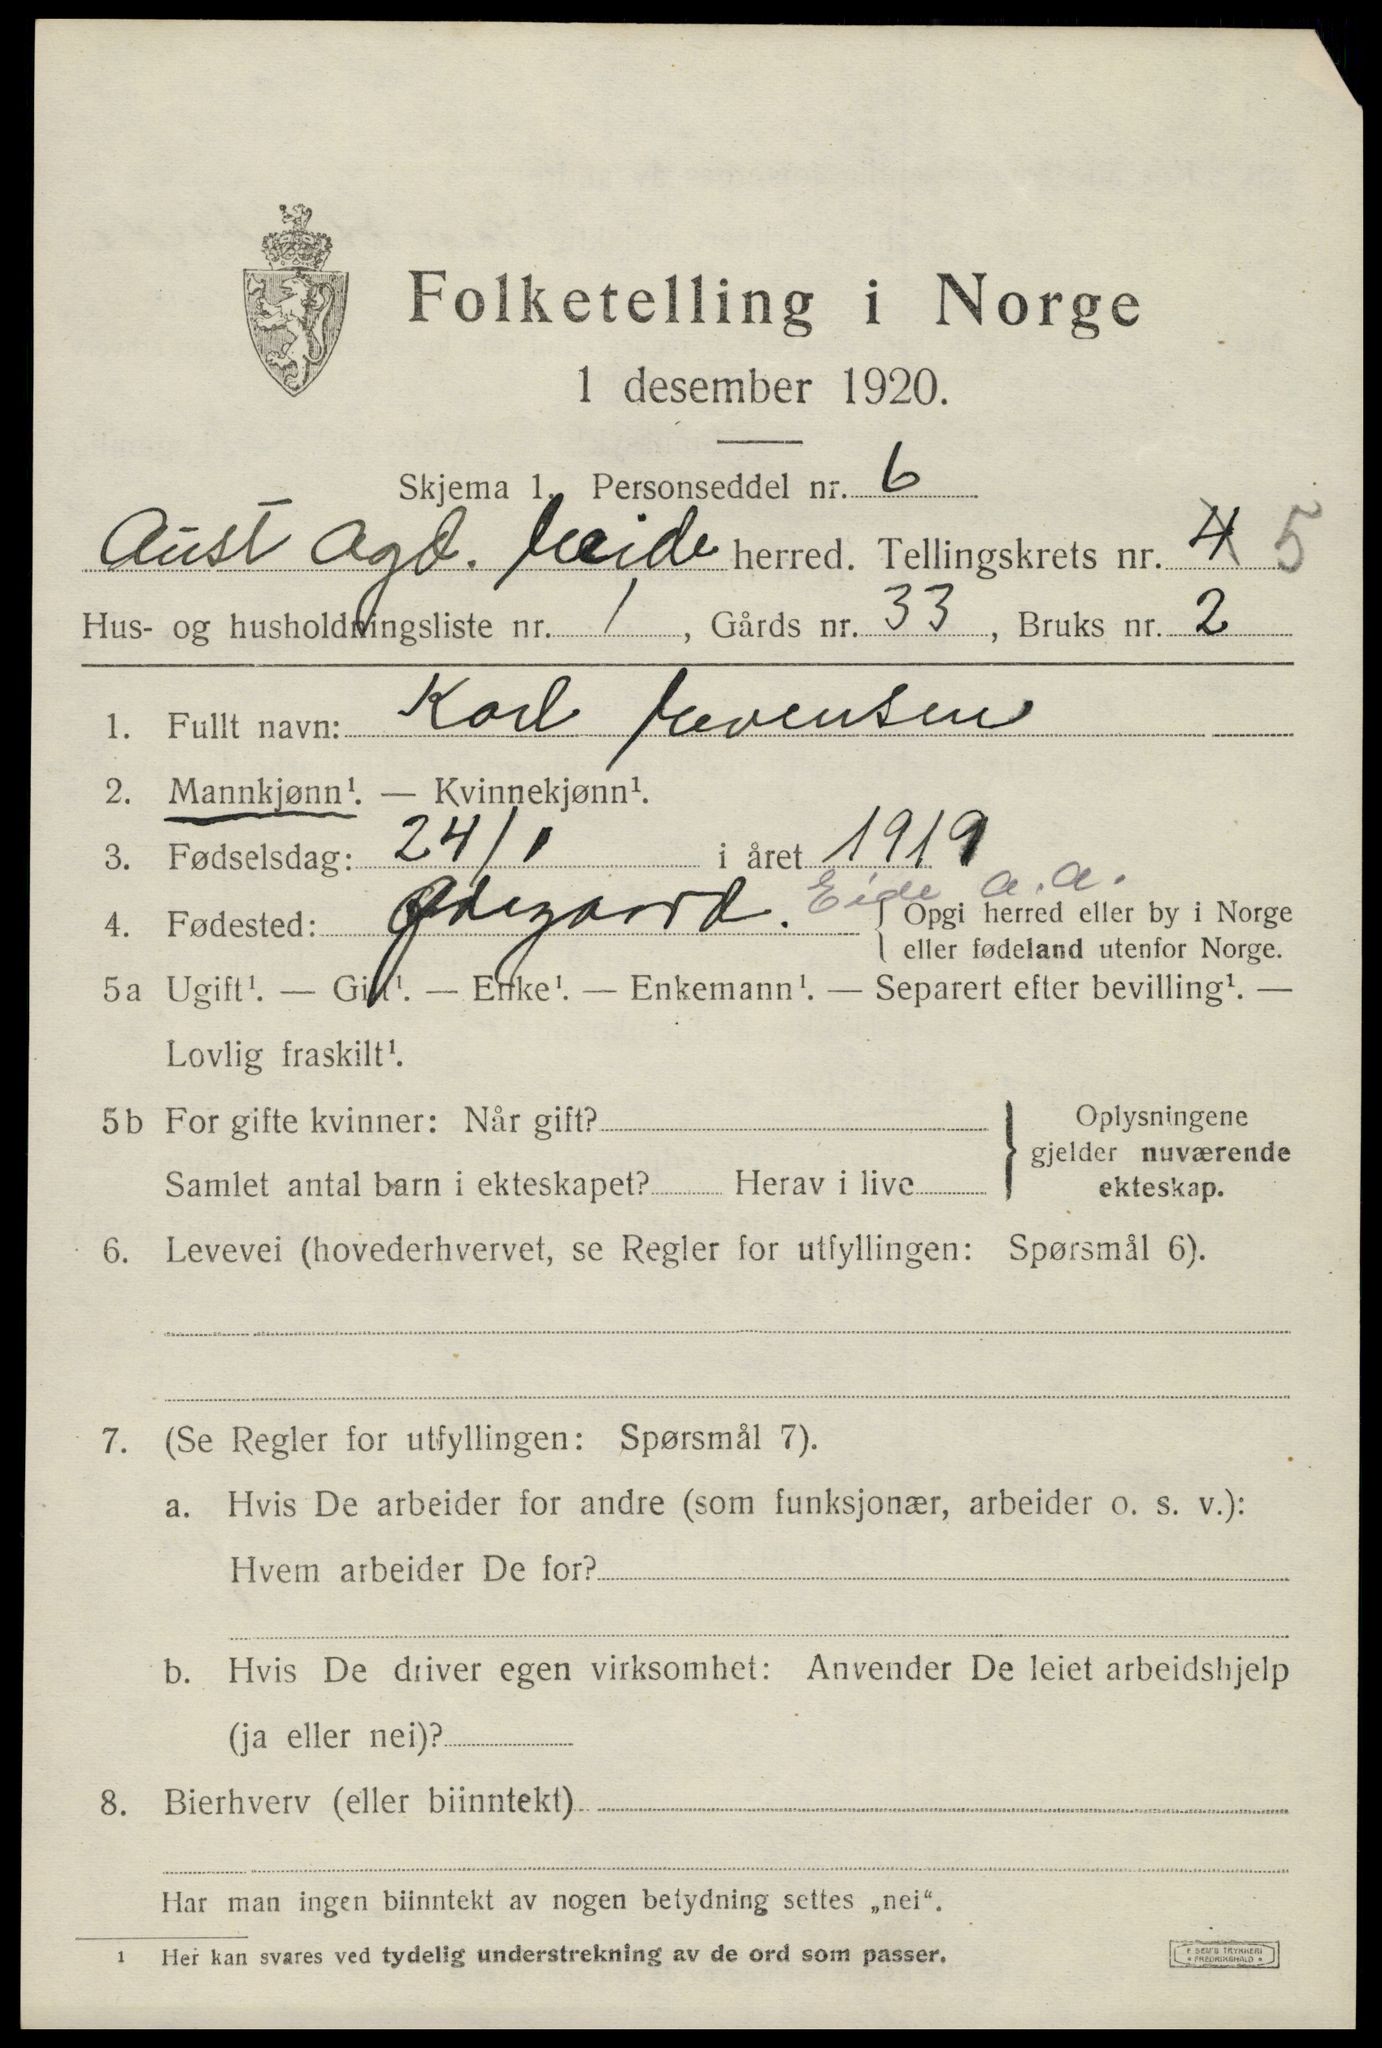 Folketelling i Norge
1 desember 1920.
Skjema 1. Personseddel nr. 6
Aust Agd. Eide herred. Tellingskrets nr. 4 5
Hus- og husholdningsliste nr. 1, Gårds nr. 33, Bruks nr. 2
1. Fullt navn: Karl Evensen
2. Mannkjønn¹. — Kvinnekjønn¹.
3. Fødselsdag: 24/1 i året 1919
4. Fødested: Ødegaard. Eide A.A. Opgi herred eller by i Norge
eller fødeland utenfor Norge.
5a Ugift¹. — Gift¹. — Enke¹. — Enkemann¹. — Separert efter bevilling¹. —
Lovlig fraskilt¹.
5b For gifte kvinner: Når gift? Oplysningene
gjelder nuværende
Samlet antal barn i ekteskapet? Herav i live ekteskap.
6. Levevei (hovederhvervet, se Regler for utfyllingen: Spørsmål 6).
7. (Se Regler for utfyllingen: Spørsmål 7).
a. Hvis De arbeider for andre (som funksjonær, arbeider o. s. v.):
Hvem arbeider De for?
b. Hvis De driver egen virksomhet: Anvender De leiet arbeidshjelp
(ja eller nei)?
8. Bierhverv (eller biinntekt)
Har man ingen biinntekt av nogen betydning settes „nei“.
¹ Her kan svares ved tydelig understrekning av de ord som passer.
F. SEM'S TRYKKERI
FREDRIKSHALD